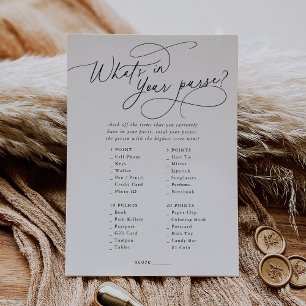 What's in
Your purse?
check off the items that you currently
have in your purse. total your points.
the person with the highest score wins!
1 POINT
_ Cell Phone
_ Keys
_ Wallet
_ Pen / Pencil
_ Credit Card
_ Photo ID
5 POINTS
_ Hair Tie
_ Mirror
_ Lipstick
_ Sunglasses
_ Perfume
_ Notebook
10 POINTS
_ Book
_ Pain Killers
_ Passport
_ Gift Card
_ Tampon
_ Tablet
20 POINTS
_ Paper Clip
_ Coloring Book
_ Postcard
_ Kids Toy
_ Candy Bar
_ $1 Coin
SCORE ______